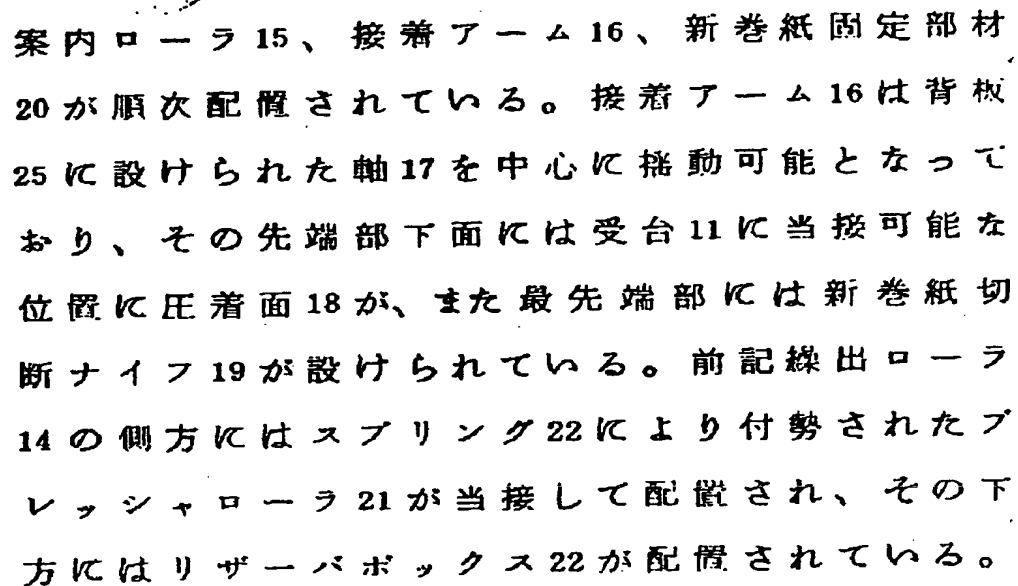 案内ローラ15、接着アーム16、新巻紙固定部材
20が順次配置されている。接着アーム16は背板
25に設けられた軸17を中心に揺動可能となって
おり、その先端部下面には受台11に当接可能な
位置に圧着面18が、また最先端部には新巻紙切
断ナイフ19が設けられている。前記繰出ローラ
14の側方にはスプリング22により付勢されたプ
レッシャローラ21が当接して配置され、その下
方にはリザーバボックス22が配置されている。